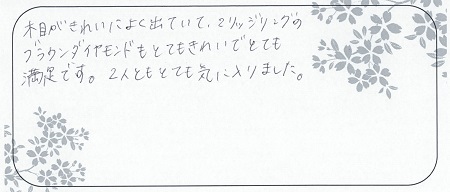 木目がきれいによく出ていて、エンゲージリングの
ブラウンダイヤモンドもとてもきれいでとても
満足です。2人ともとても気に入りました。